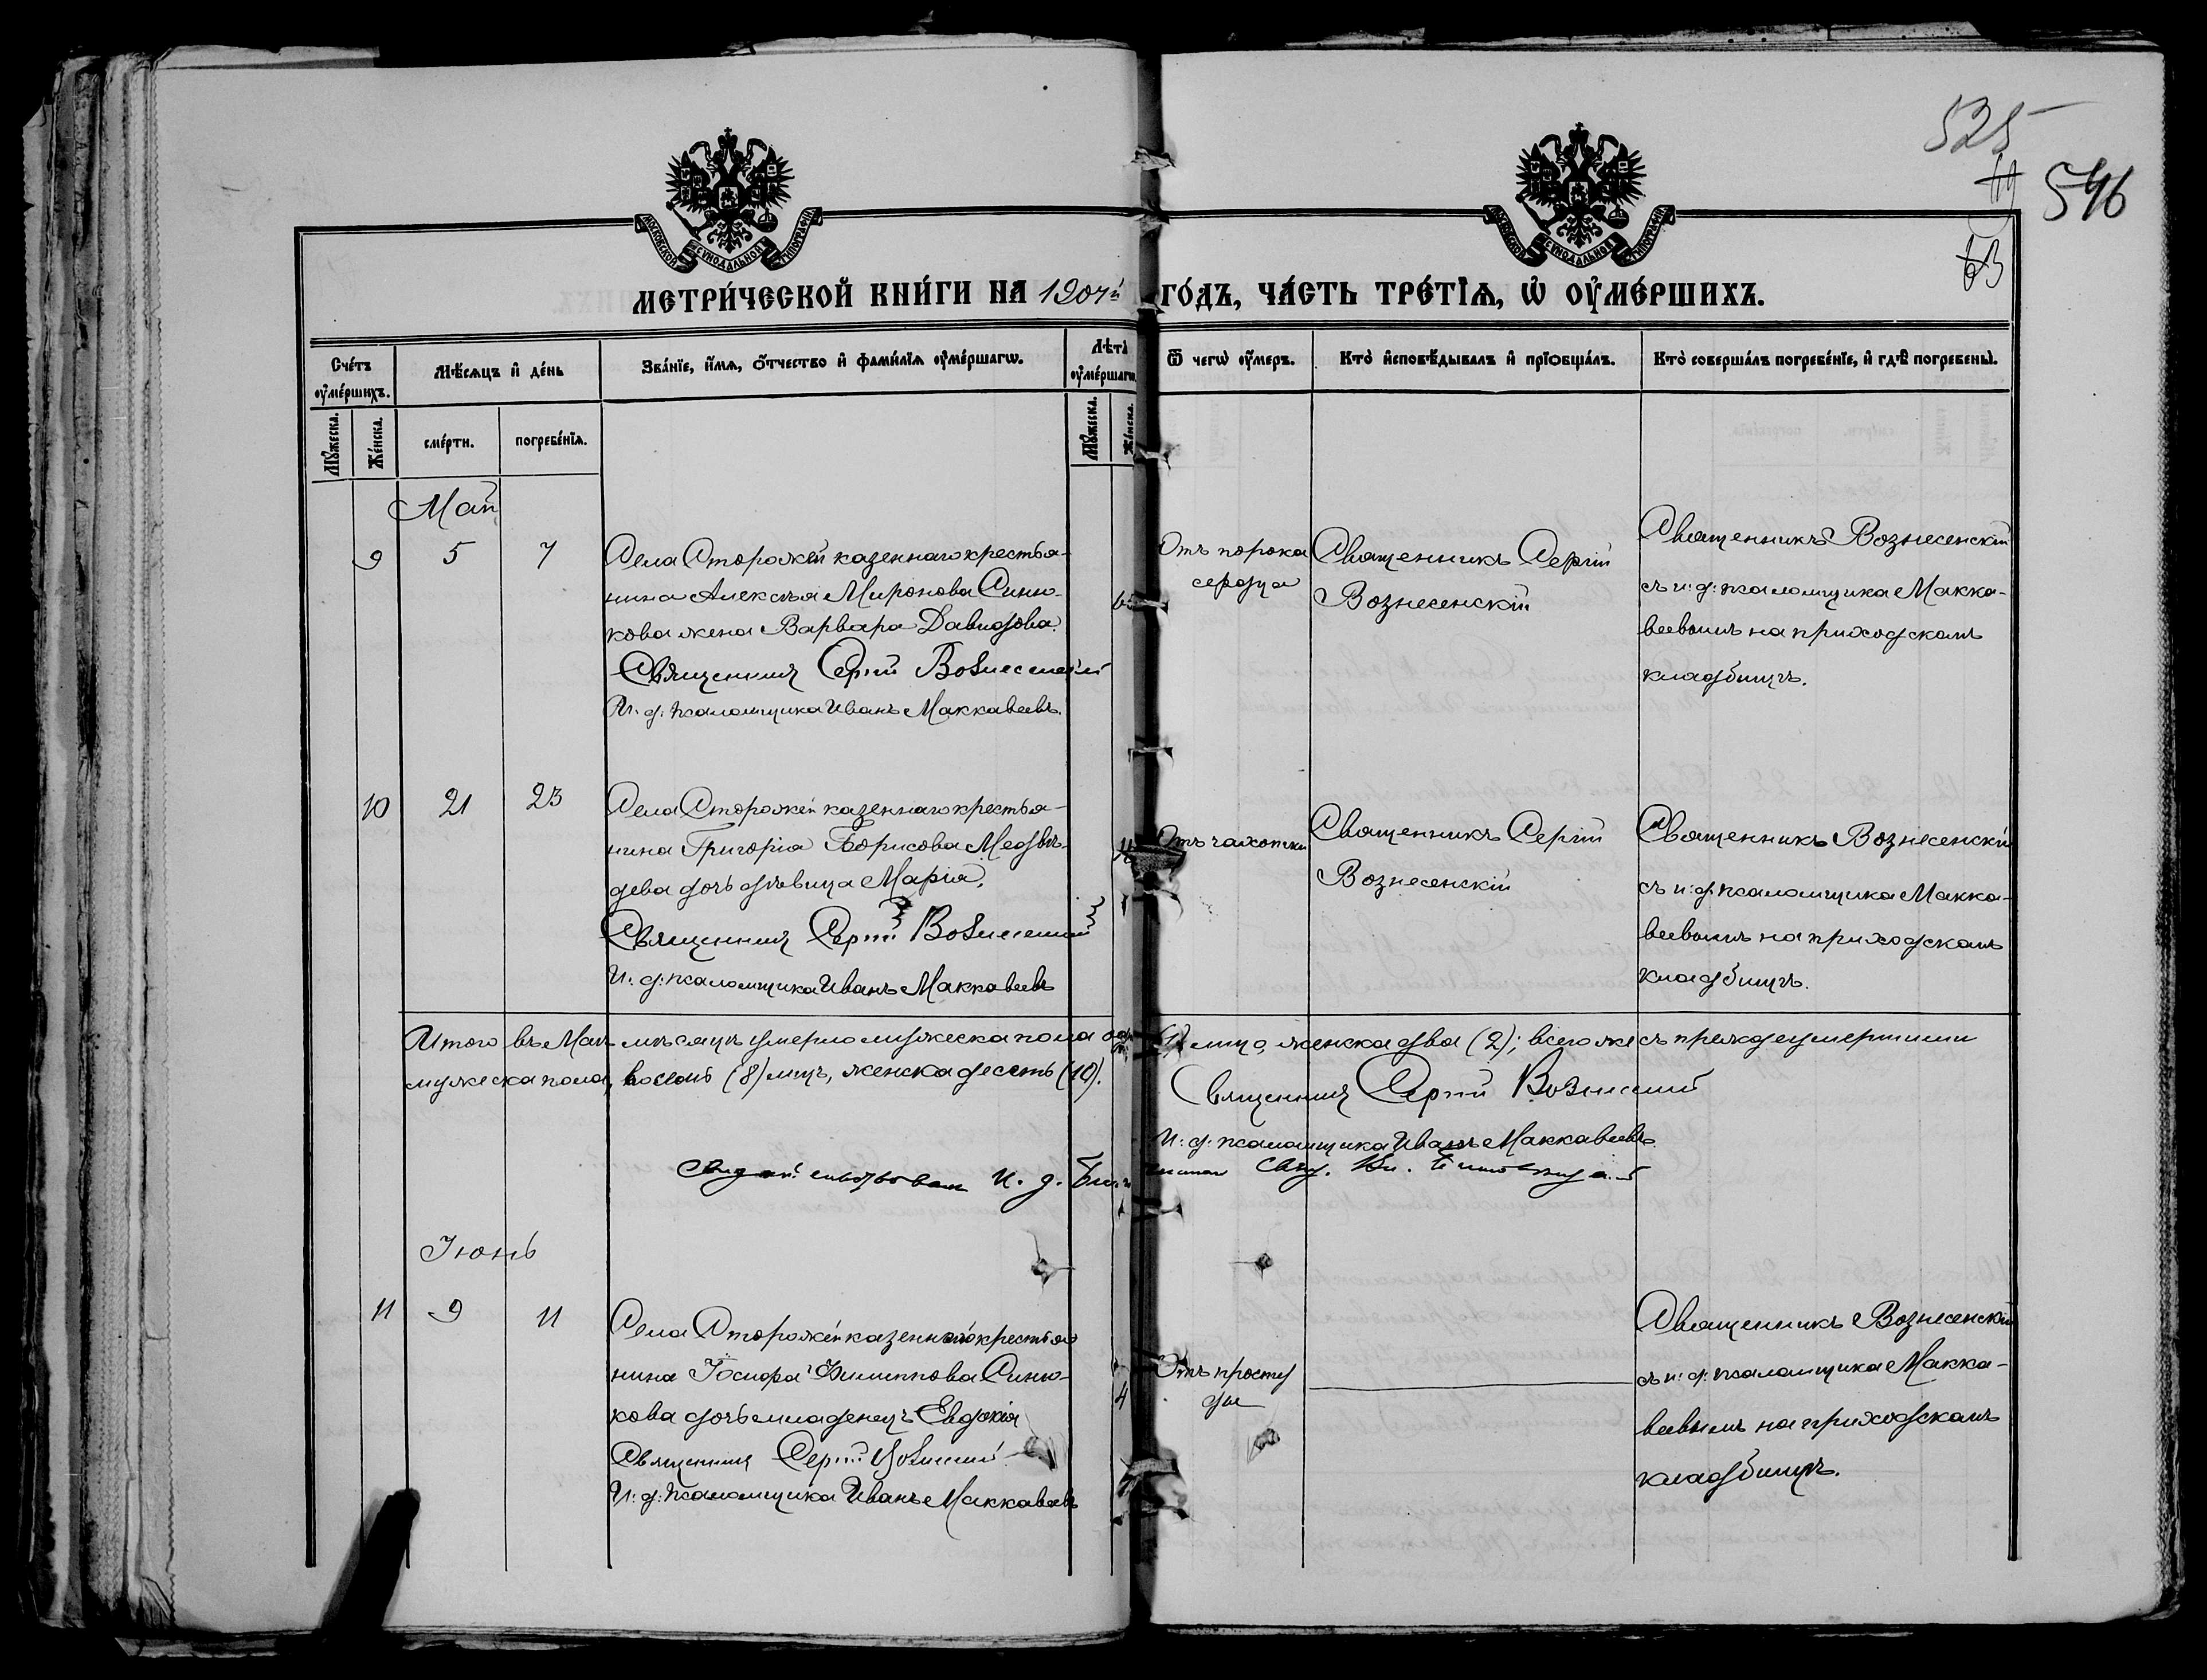 525
11
546
63
МОСКОВСКОЙ СѴНОДАЛЬНОЙ ТИПОГРАФІИ
МОСКОВСКОЙ СѴНОДАЛЬНОЙ ТИПОГРАФІИ
МЕТРИ́ЧЕСКОЙ КНИ́ГИ НА 1904й ГО́ДЪ, ЧА́СТЬ ТРЕ́ТІѦ, Ѡ҆ ОУ҆МЕ́РШИХЪ.
Сче́тъ оу҆ме́ршихъ.
Мѣ́сѧцъ и҆ де́нь
Зва́нїе, и҆́мѧ, ѻ҆́тчество и҆ фами́лїѧ оу҆ме́ршагѡ.
Лѣ́та̀ оу҆ме́ршагѡ.
Ѿ чегѡ̀ оу҆́меръ.
Кто̀ и҆сповѣ́дывалъ и҆ прїѻбща́лъ.
Кто̀ соверша́лъ погребе́нїе, и҆ гдѣ̀ погребены̀.
Мꙋ́жеска.
Же́нска.
сме́рти.
погребе́нїѧ.
Мꙋ́жеска.
Же́нска.
Май
9 5 7
Села Сторожей казеннаго крестья-
нина Алексѣя Миронова Синю-
кова жена Варвара Давидова.
Священникъ Сергій Вознесенскій
И. д. псаломщика Иванъ Маккавеевъ.
65
Отъ порока
сердца
Священникъ Сергій
Вознесенскій
Священникъ Вознесенскій
съ и. д. псаломщика Макка-
веевымъ на приходскомъ
кладбищѣ.
10 21 23
Села Сторожей казеннаго крестья-
нина Григорія Борисова Медвѣ-
дева дочь дѣвица Марія.
Священникъ Сергій Вознесенскій
И. д. псаломщика Иванъ Маккавеевъ
Отъ чахотки
Священникъ Сергій
Вознесенскій
Священникъ Вознесенскій
съ и. д. псаломщика Макка-
веевымъ на приходскомъ
кладбищѣ.
Итого въ Маѣ мѣсяцѣ умерло мужеска пола одно (1) лицо, женска два (2); всего же съ прежде умершими
мужеска пола, восемь (8) лицъ, женска десять (10).
Священникъ Сергій Вознесенскій
И. д. псаломщика Иванъ Маккавеевъ
Свидѣтельствовалъ И. д. Свящ.
Іюнь
11 9 11
Села Сторожей казеннаго крестья-
нина Іосифа Филиппова Синю-
кова дочь младенецъ Евдокія
Священникъ Сергій Вознесенскій
И. д. псаломщика Иванъ Маккавеевъ
4
Отъ просту
ды
Священникъ Вознесенскій
съ и. д. псаломщика Макка-
веевымъ на приходскомъ
кладбищѣ.